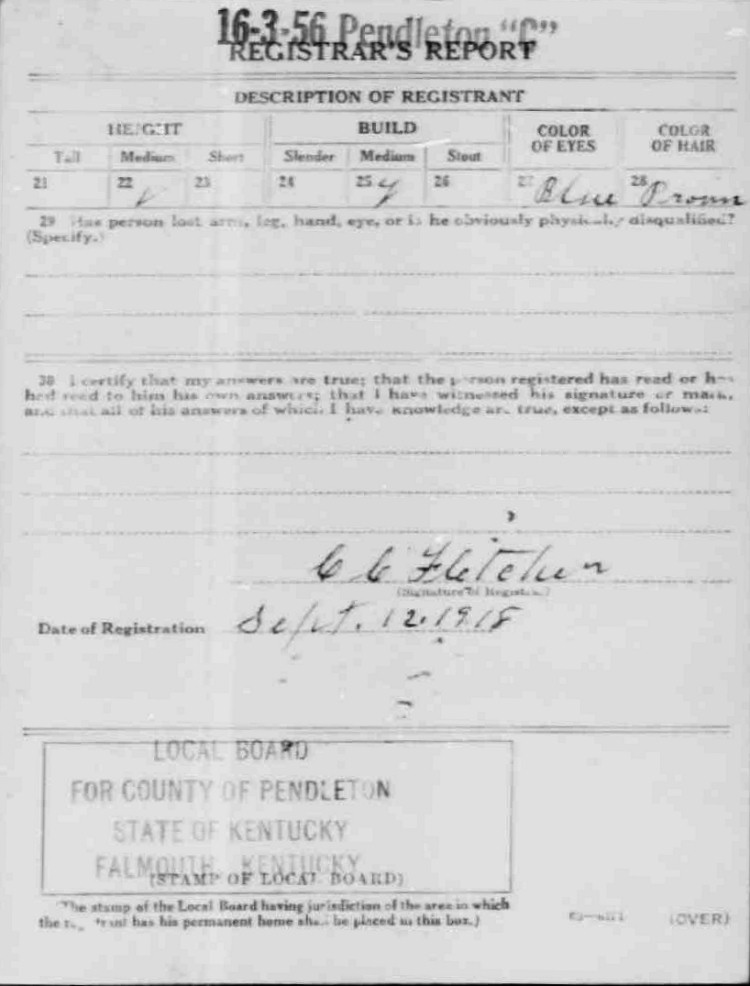 16-3-56 Pendleton "C"
REGISTRAR'S REPORT
DESCRIPTION OF REGISTRANT
HEIGHT BUILD COLOR OF EYES COLOR OF HAIR
Tall Medium Short Slender Medium Stout
21 22 ✓ 23 24 25 y 26 27 Blue 28 Brown
29 Has person lost arm, leg, hand, eye, or is he obviously physically disqualified?
(Specify.)
30 I certify that my answers are true; that the person registered has read or has
had read to him his own answers; that I have witnessed his signature or mark,
and that all of his answers of which I have knowledge are true, except as follows:
C C Fletcher
(Signature of Registrar)
Date of Registration Sept. 12. 1918
LOCAL BOARD
FOR COUNTY OF PENDLETON
STATE OF KENTUCKY
FALMOUTH, KENTUCKY
(STAMP OF LOCAL BOARD)
The stamp of the Local Board having jurisdiction of the area in which
the registrant has his permanent home shall be placed in this box.)
(OVER)